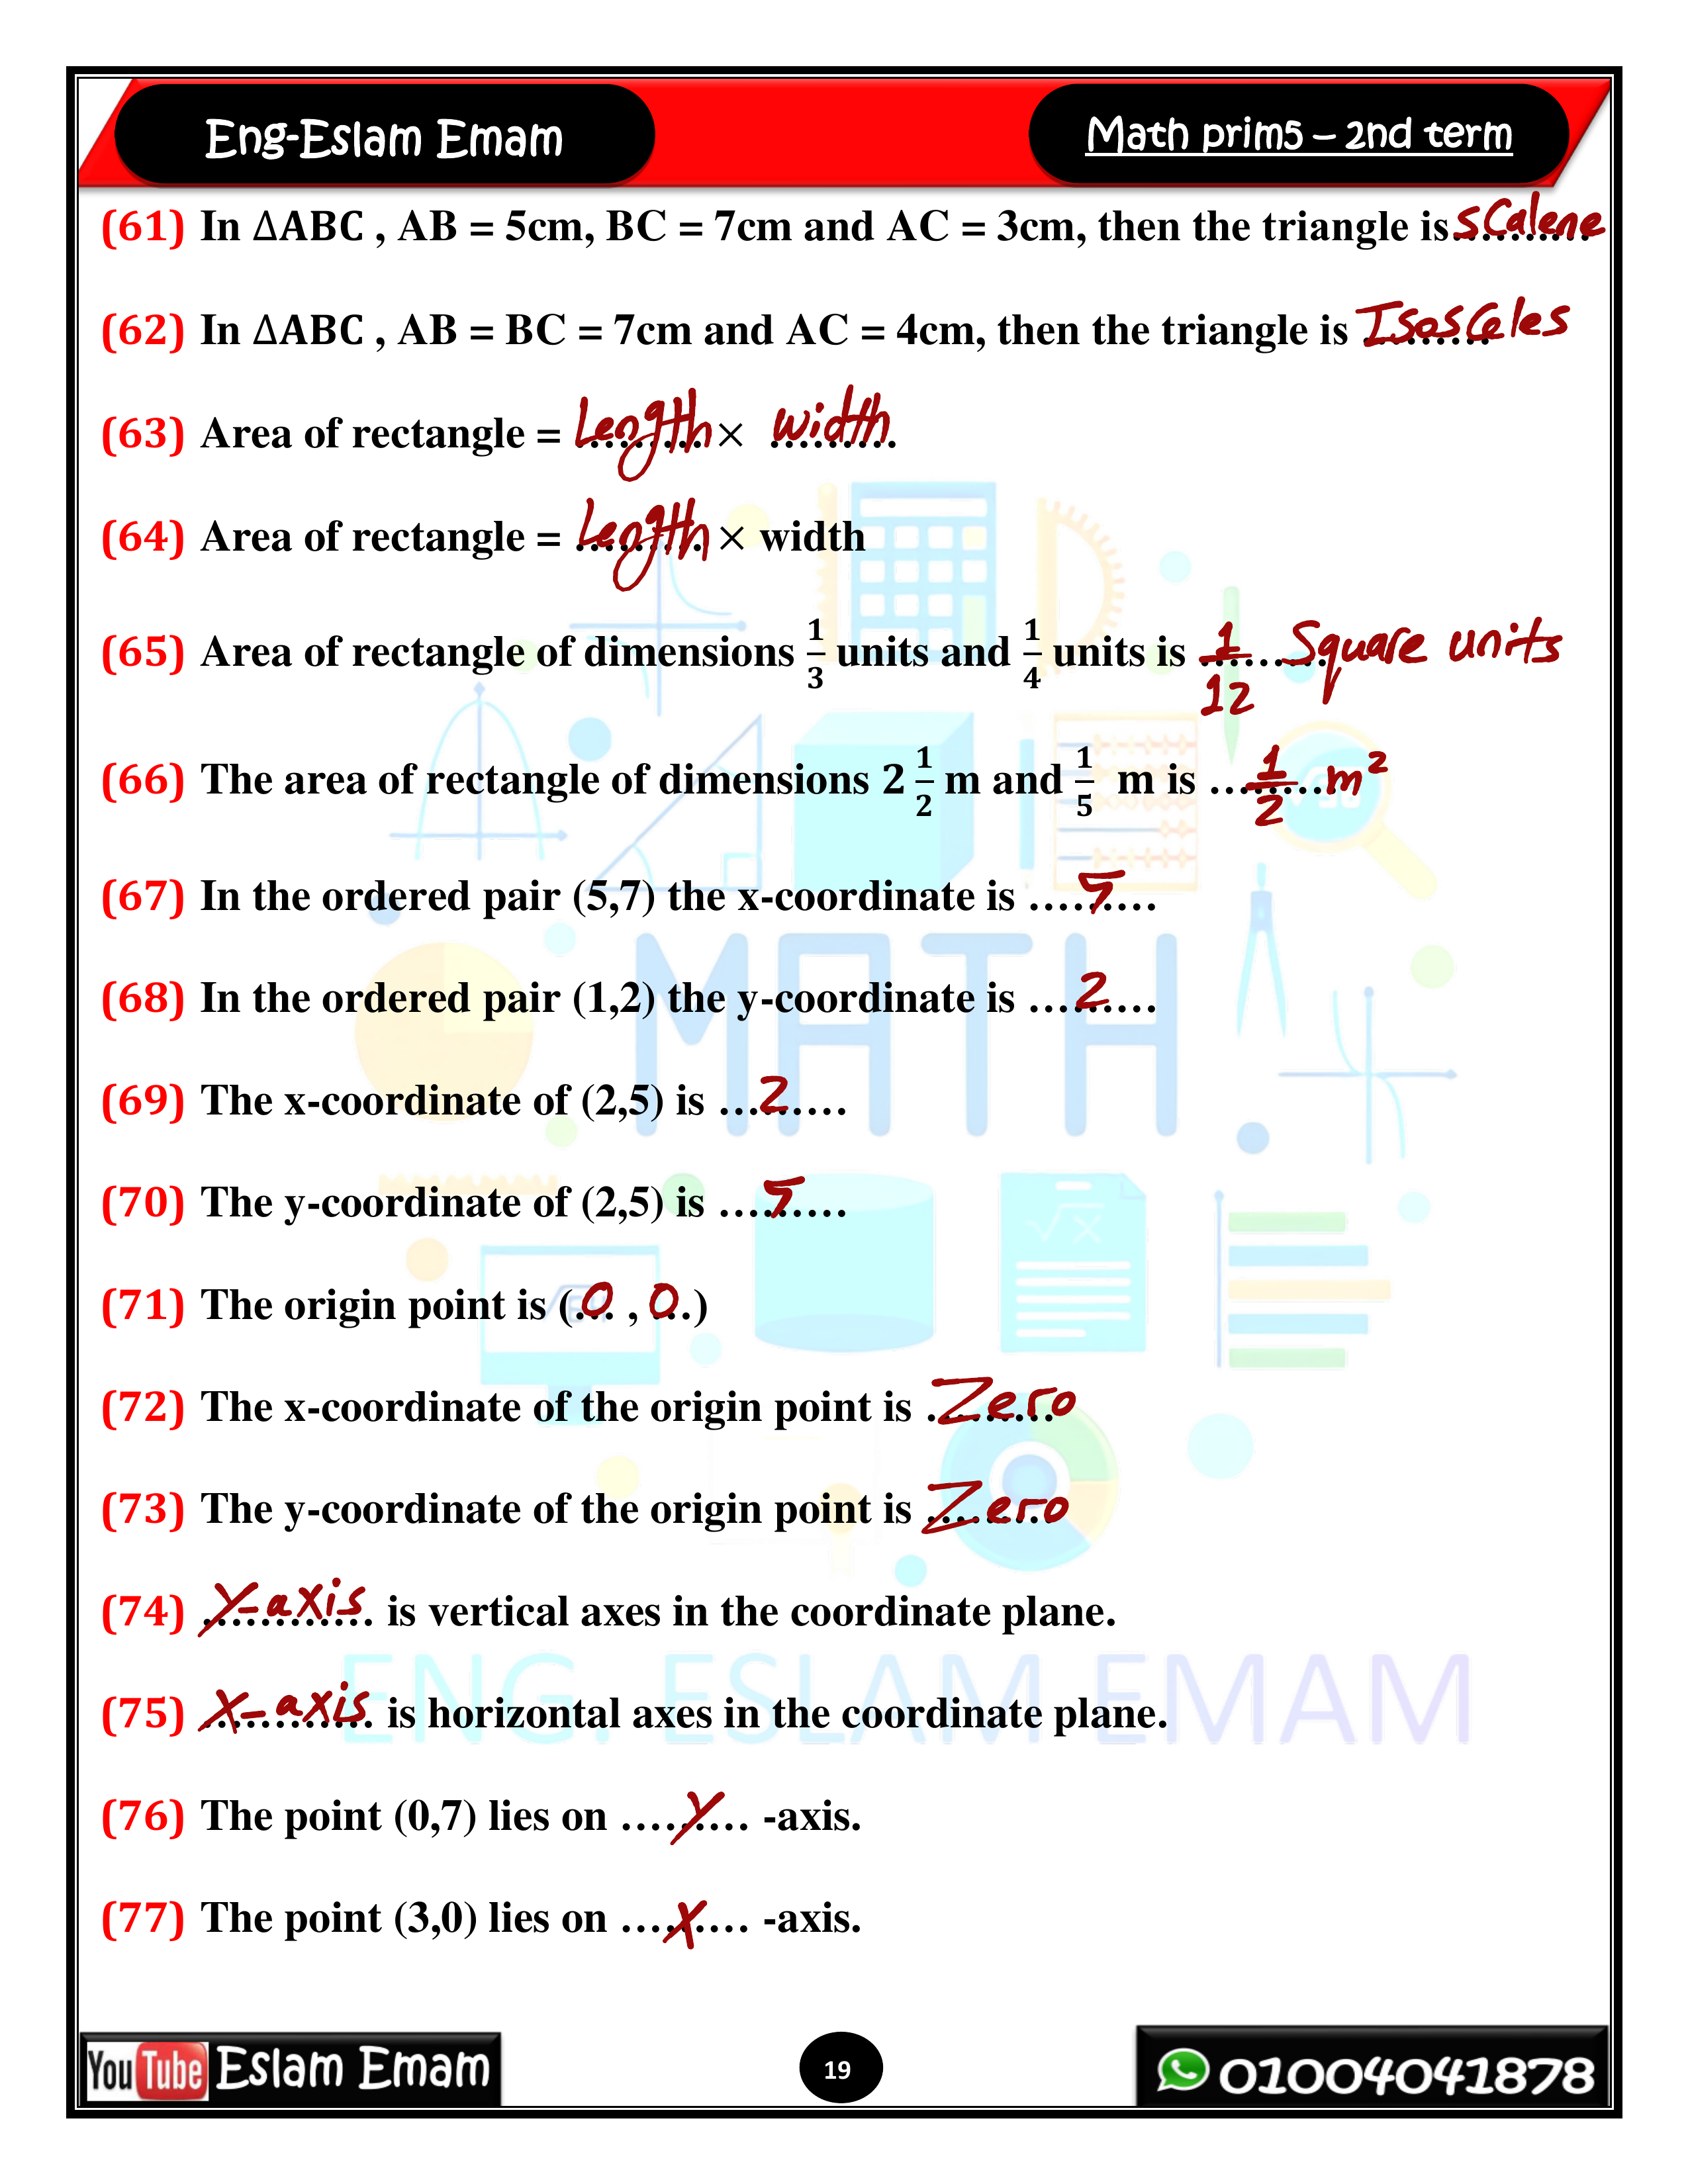 Eng-Eslam Emam
Math prim5 – 2nd term
(61) In ∆ABC , AB = 5cm, BC = 7cm and AC = 3cm, then the triangle is.......... sCalene
(62) In ∆ABC , AB = BC = 7cm and AC = 4cm, then the triangle is ......... Isosceles
(63) Area of rectangle = ......... Length × ......... width
(64) Area of rectangle = ......... Length × width
(65) Area of rectangle of dimensions 1/3 units and 1/4 units is ......... 1/12 Square units
(66) The area of rectangle of dimensions 2 1/2 m and 1/5 m is ......... 1/2 m²
(67) In the ordered pair (5,7) the x-coordinate is ......... 5
(68) In the ordered pair (1,2) the y-coordinate is ......... 2
(69) The x-coordinate of (2,5) is ......... 2
(70) The y-coordinate of (2,5) is ......... 5
(71) The origin point is (... 0 , 0 ...)
(72) The x-coordinate of the origin point is ......... Zero
(73) The y-coordinate of the origin point is ......... Zero
(74) y-axis ............ is vertical axes in the coordinate plane.
(75) x-axis ............ is horizontal axes in the coordinate plane.
(76) The point (0,7) lies on ......... y -axis.
(77) The point (3,0) lies on ......... x -axis.
MATH
ENG. ESLAM EMAM
YouTube Eslam Emam
19
01004041878